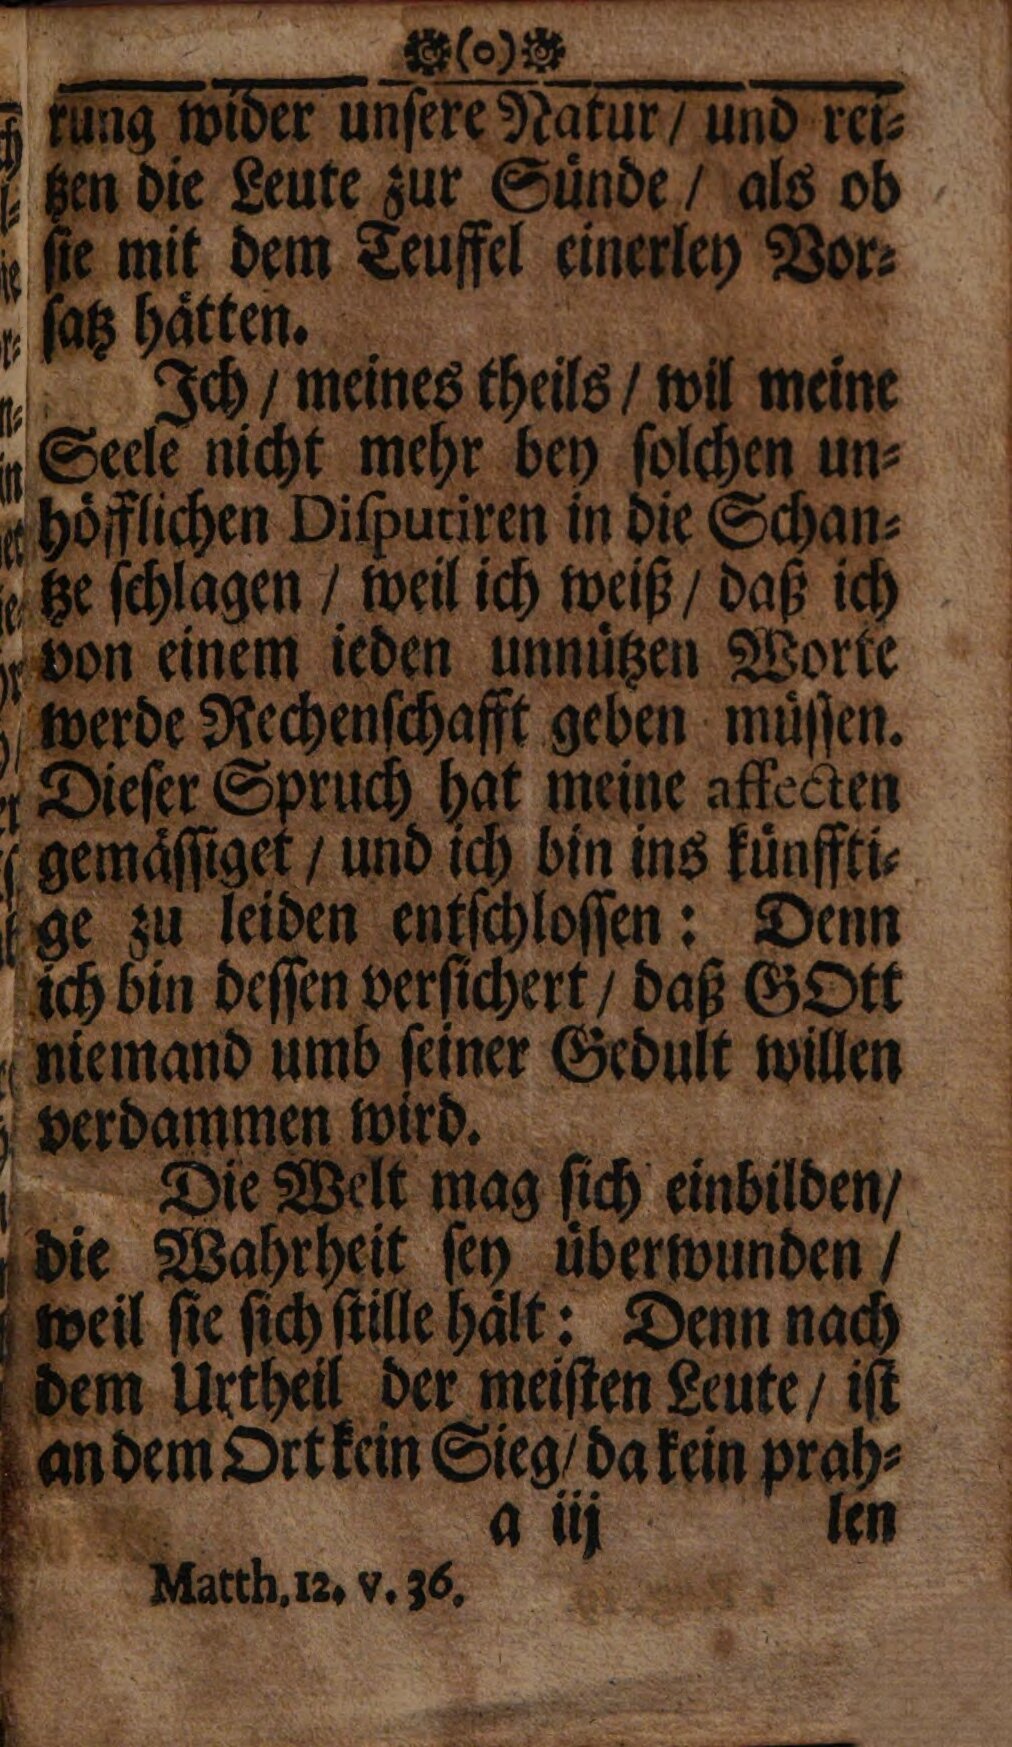 (o)
rung wider unsere Natur / und rei-
tzen die Leute zur Sünde / als ob
sie mit dem Teuffel einerley Vor-
satz hätten.
Ich / meines theils / wil meine
Seele nicht mehr bey solchen un-
höfflichen Disputiren in die Schan-
tze schlagen / weil ich weiß / daß ich
von einem ieden unnützen Worte
werde Rechenschafft geben müssen.
Dieser Spruch hat meine affecten
gemässiget / und ich bin ins künffti-
ge zu leiden entschlossen: Denn
ich bin dessen versichert / daß GOtt
niemand umb seiner Gedult willen
verdammen wird.
Die Welt mag sich einbilden /
die Wahrheit sey überwunden /
weil sie sich stille hält: Denn nach
dem Urtheil der meisten Leute / ist
an dem Ort kein Sieg / da kein prah-
a iij len
Matth. 12. v. 36.